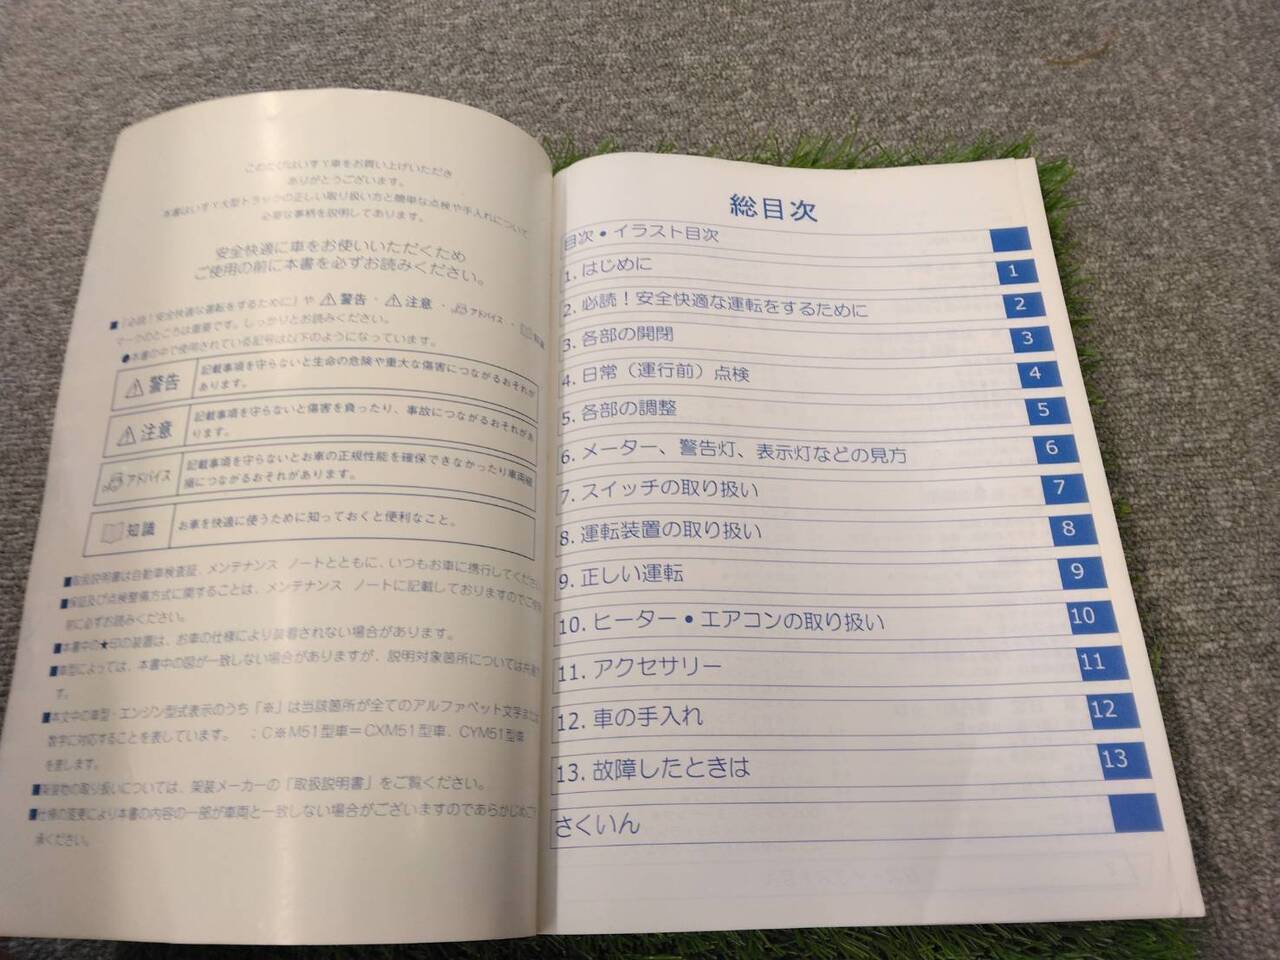 このたびはいすゞ車をお買い上げいただき
ありがとうございます。
本書はいすゞ大型トラックの正しい取り扱い方と簡単な点検や手入れについて
必要な事柄を説明してあります。
安全快適に車をお使いいただくため
ご使用の前に本書を必ずお読みください。
■「必読！安全快適な運転をするために」や ⚠警告・⚠注意・アドバイス・知識
マークのところは重要です。しっかりとお読みください。
●本書の中で使用されている記号は以下のようになっています。
⚠警告 記載事項を守らないと生命の危険や重大な傷害につながるおそれが
あります。
⚠注意 記載事項を守らないと傷害を負ったり、事故につながるおそれがあ
ります。
アドバイス 記載事項を守らないとお車の正規性能を確保できなかったり車両破
損につながるおそれがあります。
知識 お車を快適に使うために知っておくと便利なこと。
■取扱説明書は自動車検査証、メンテナンス ノートとともに、いつもお車に携行してくださ
■保証及び点検整備方式に関することは、メンテナンス ノートに記載しておりますのでご使用
前に必ずお読みください。
■本書中の★印の装置は、お車の仕様により装着されない場合があります。
■車型によっては、本書中の図が一致しない場合がありますが、説明対象箇所については共通で
す。
■本文中の車型・エンジン型式表示のうち「※」は当該箇所が全てのアルファベット文字または
数字に対応することを表しています。 ；C※M51型車＝CXM51型車、CYM51型車
を表します。
■架装物の取り扱いについては、架装メーカーの「取扱説明書」をご覧ください。
■仕様の変更により本書の内容の一部が車両と一致しない場合がございますのであらかじめご了
承ください。
総目次
目次・イラスト目次
1. はじめに 1
2. 必読！安全快適な運転をするために 2
3. 各部の開閉 3
4. 日常（運行前）点検 4
5. 各部の調整 5
6. メーター、警告灯、表示灯などの見方 6
7. スイッチの取り扱い 7
8. 運転装置の取り扱い 8
9. 正しい運転 9
10. ヒーター・エアコンの取り扱い 10
11. アクセサリー 11
12. 車の手入れ 12
13. 故障したときは 13
さくいん